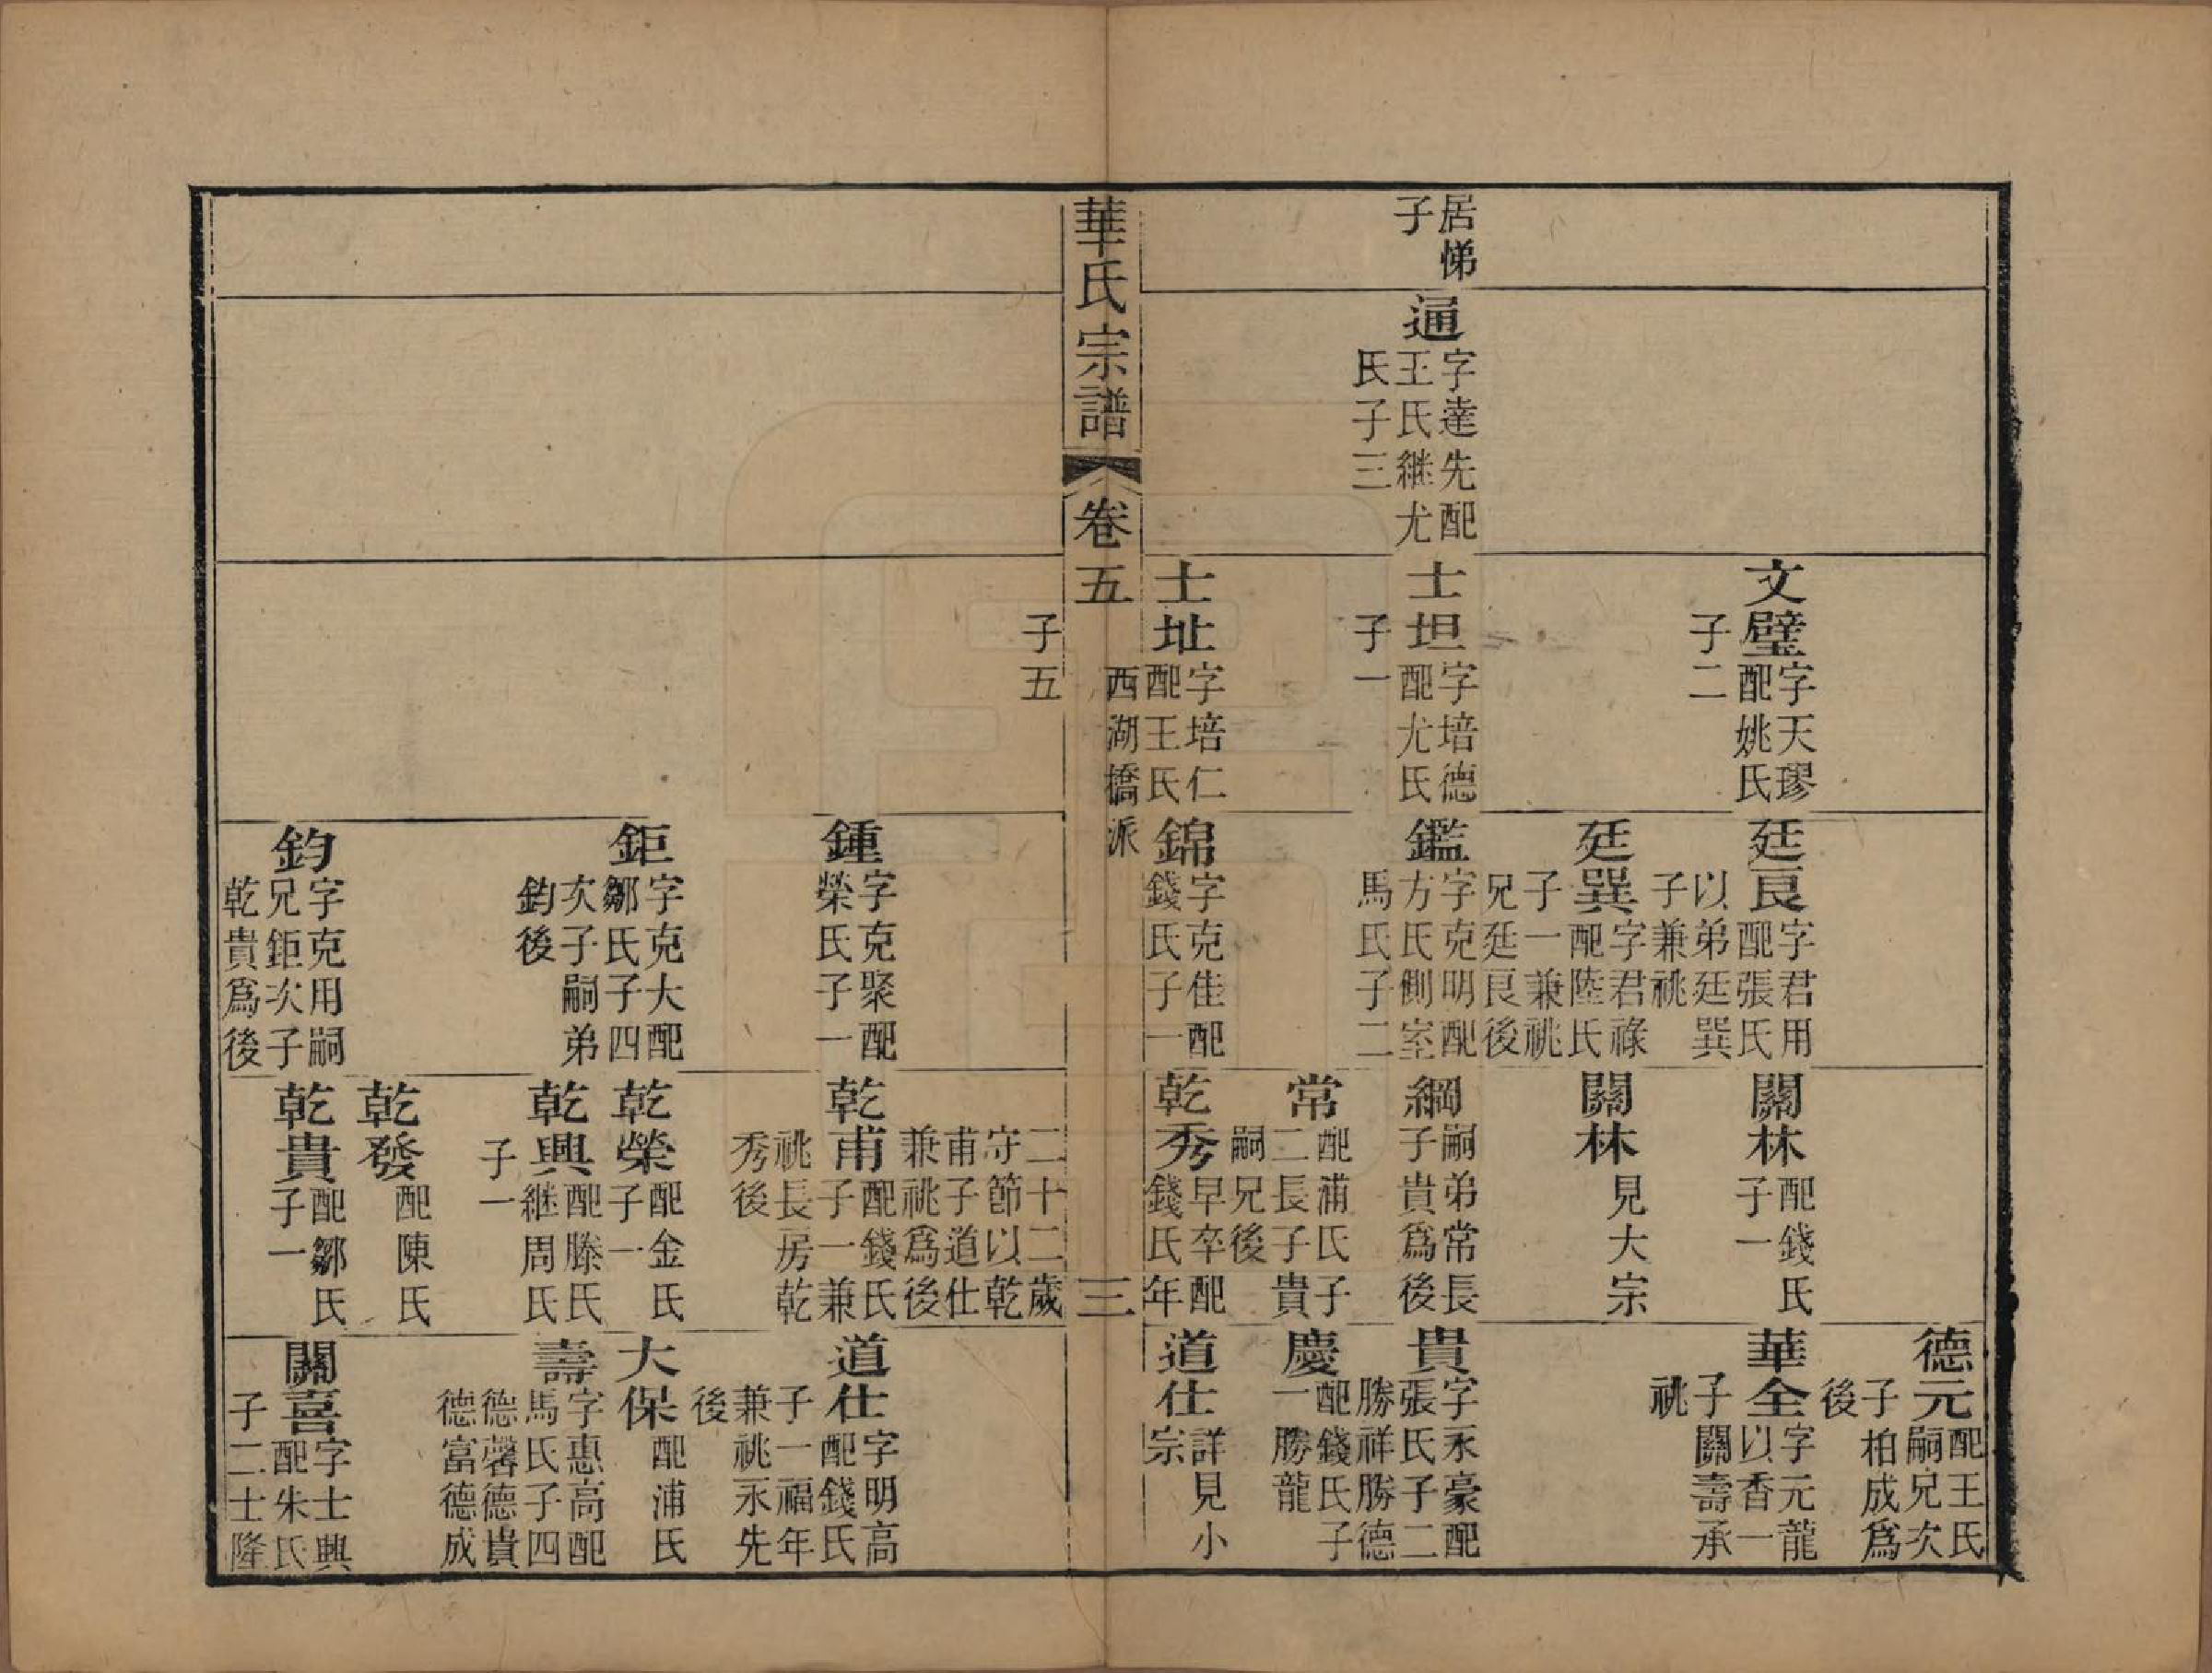 居悌
子
通
字達先配
王氏繼尤
氏子三
文璧
字天璆
配姚氏
子二
士坦
字培德
配尤氏
子一
士址
字培仁
配王氏
西湖橋派
子五
廷良
字君用
配張氏
以弟廷巽
子兼祧
廷巽
字君祿
配陸氏
子一兼祧
兄廷良後
鑑
字克明配
方氏側室
馬氏子二
錦
字克佳配
錢氏子一
關林
配錢氏
子一
關林
見大宗
綱
嗣弟常長
子貴爲後
常
配浦氏子
二長子貴
嗣兄後
乾秀
早卒配
錢氏年
二十二歲
守節以乾
甫子道仕
兼祧爲後
德元
配王氏
嗣兄次
子柏成爲
後
華全
字元龍
以香一
子關壽承
祧
貴
字永豪配
張氏子二
勝祥勝德
慶
配錢氏子
一勝龍
道仕
詳見小
宗
華氏宗譜
卷五
三
鍾
字克聚配
榮氏子一
鉅
字克大配
鄒氏子四
次子嗣弟
鈞後
鈞
字克用嗣
兄鉅次子
乾貴爲後
乾甫
配錢氏
子一兼
祧長房乾
秀後
乾榮
配金氏
子一
乾興
配滕氏
繼周氏
子一
乾發
配陳氏
乾貴
配鄒氏
子一
道仕
字明高
配錢氏
子一福年
兼祧永先
後
大保
配浦氏
壽
字惠高配
馬氏子四
德馨德貴
德富德成
關喜
字士興
配朱氏
子二士隆